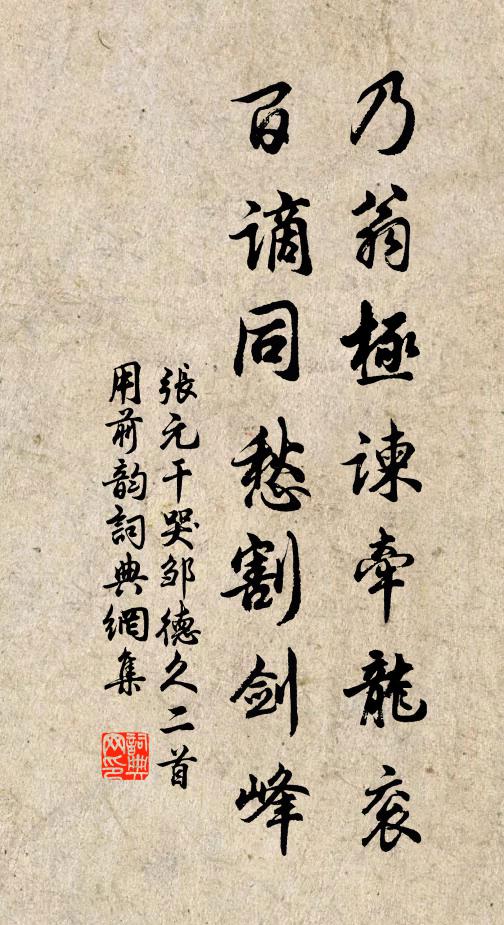 乃翁極諫牽龍衮
百謫同愁割剑峰
張元干哭邹德久二首
用前韵詞典網集
詞典网印